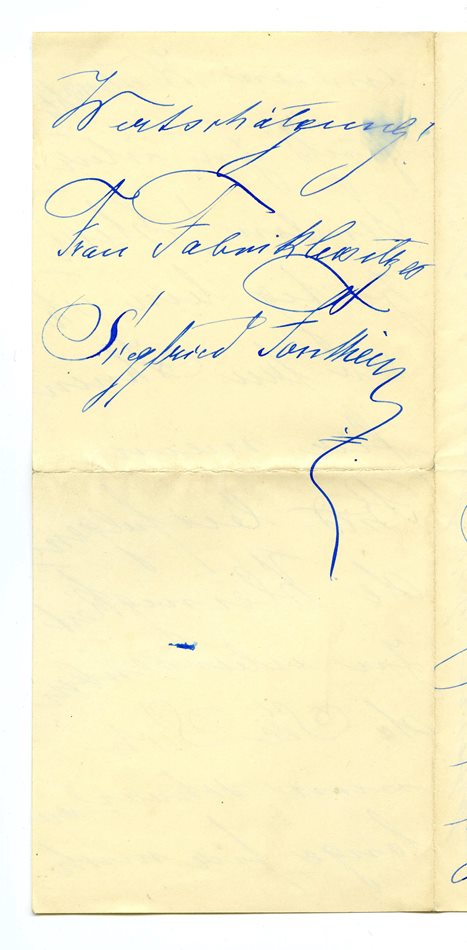 Wertschätzung!
Frau Fabrikbesitzer
Siegfried